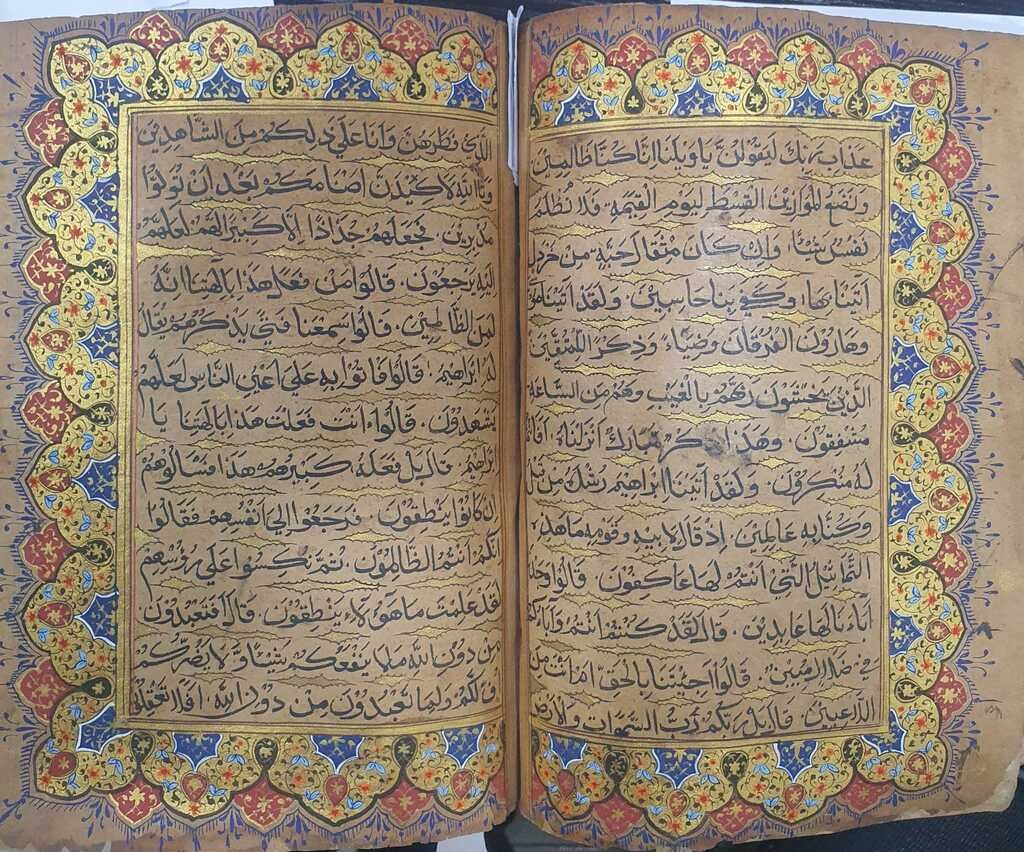 عَذَابِ رَبِّكَ لَيَقُولُنَّ يَا وَيْلَنَا اِنَّا كُنَّا ظَالِمِينَ
وَنَضَعُ الْمَوَازِينَ الْقِسْطَ لِيَوْمِ الْقِيٰمَةِ فَلَا تُظْلَمُ
نَفْسٌ شَيْئًا وَاِنْ كَانَ مِثْقَالَ حَبَّةٍ مِنْ خَرْدَلٍ
اَتَيْنَا بِهَا وَكَفٰى بِنَا حَاسِبِينَ وَلَقَدْ اٰتَيْنَا مُوسٰى
وَهَارُونَ الْفُرْقَانَ وَضِيَاءً وَذِكْرًا لِلْمُتَّقِينَ
الَّذِينَ يَخْشَوْنَ رَبَّهُمْ بِالْغَيْبِ وَهُمْ مِنَ السَّاعَةِ
مُشْفِقُونَ وَهٰذَا ذِكْرٌ مُبَارَكٌ اَنْزَلْنَاهُ اَفَاَنْتُمْ
لَهُ مُنْكِرُونَ وَلَقَدْ اٰتَيْنَا اِبْرٰهِيمَ رُشْدَهُ مِنْ قَبْلُ
وَكُنَّا بِهِ عَالِمِينَ اِذْ قَالَ لِاَبِيهِ وَقَوْمِهِ مَا هٰذِهِ
التَّمَاثِيلُ الَّتِي اَنْتُمْ لَهَا عَاكِفُونَ قَالُوا وَجَدْنَا
اٰبَاءَنَا لَهَا عَابِدِينَ قَالَ لَقَدْ كُنْتُمْ اَنْتُمْ وَاٰبَاؤُكُمْ
فِي ضَلَالٍ مُبِينٍ قَالُوا اَجِئْتَنَا بِالْحَقِّ اَمْ اَنْتَ مِنَ
اللَّاعِبِينَ قَالَ بَلْ رَبُّكُمْ رَبُّ السَّمٰوَاتِ وَالْاَرْضِ
الَّذِي فَطَرَهُنَّ وَاَنَا عَلٰى ذٰلِكُمْ مِنَ الشَّاهِدِينَ
وَتَاللّٰهِ لَاَكِيدَنَّ اَصْنَامَكُمْ بَعْدَ اَنْ تُوَلُّوا
مُدْبِرِينَ فَجَعَلَهُمْ جُذَاذًا اِلَّا كَبِيرًا لَهُمْ لَعَلَّهُمْ
اِلَيْهِ يَرْجِعُونَ قَالُوا مَنْ فَعَلَ هٰذَا بِاٰلِهَتِنَا اِنَّهُ
لَمِنَ الظَّالِمِينَ قَالُوا سَمِعْنَا فَتًى يَذْكُرُهُمْ يُقَالُ
لَهُ اِبْرَاهِيمُ قَالُوا فَأْتُوا بِهِ عَلٰى اَعْيُنِ النَّاسِ لَعَلَّهُمْ
يَشْهَدُونَ قَالُوا ءَاَنْتَ فَعَلْتَ هٰذَا بِاٰلِهَتِنَا يَا
اِبْرٰهِيمُ قَالَ بَلْ فَعَلَهُ كَبِيرُهُمْ هٰذَا فَسْئَلُوهُمْ
اِنْ كَانُوا يَنْطِقُونَ فَرَجَعُوا اِلٰى اَنْفُسِهِمْ فَقَالُوا
اِنَّكُمْ اَنْتُمُ الظَّالِمُونَ ثُمَّ نُكِسُوا عَلٰى رُؤُسِهِمْ
لَقَدْ عَلِمْتَ مَا هٰؤُلَاءِ يَنْطِقُونَ قَالَ اَفَتَعْبُدُونَ
مِنْ دُونِ اللّٰهِ مَا لَا يَنْفَعُكُمْ شَيْئًا وَلَا يَضُرُّكُمْ
اُفٍّ لَكُمْ وَلِمَا تَعْبُدُونَ مِنْ دُونِ اللّٰهِ اَفَلَا تَعْقِلُونَ